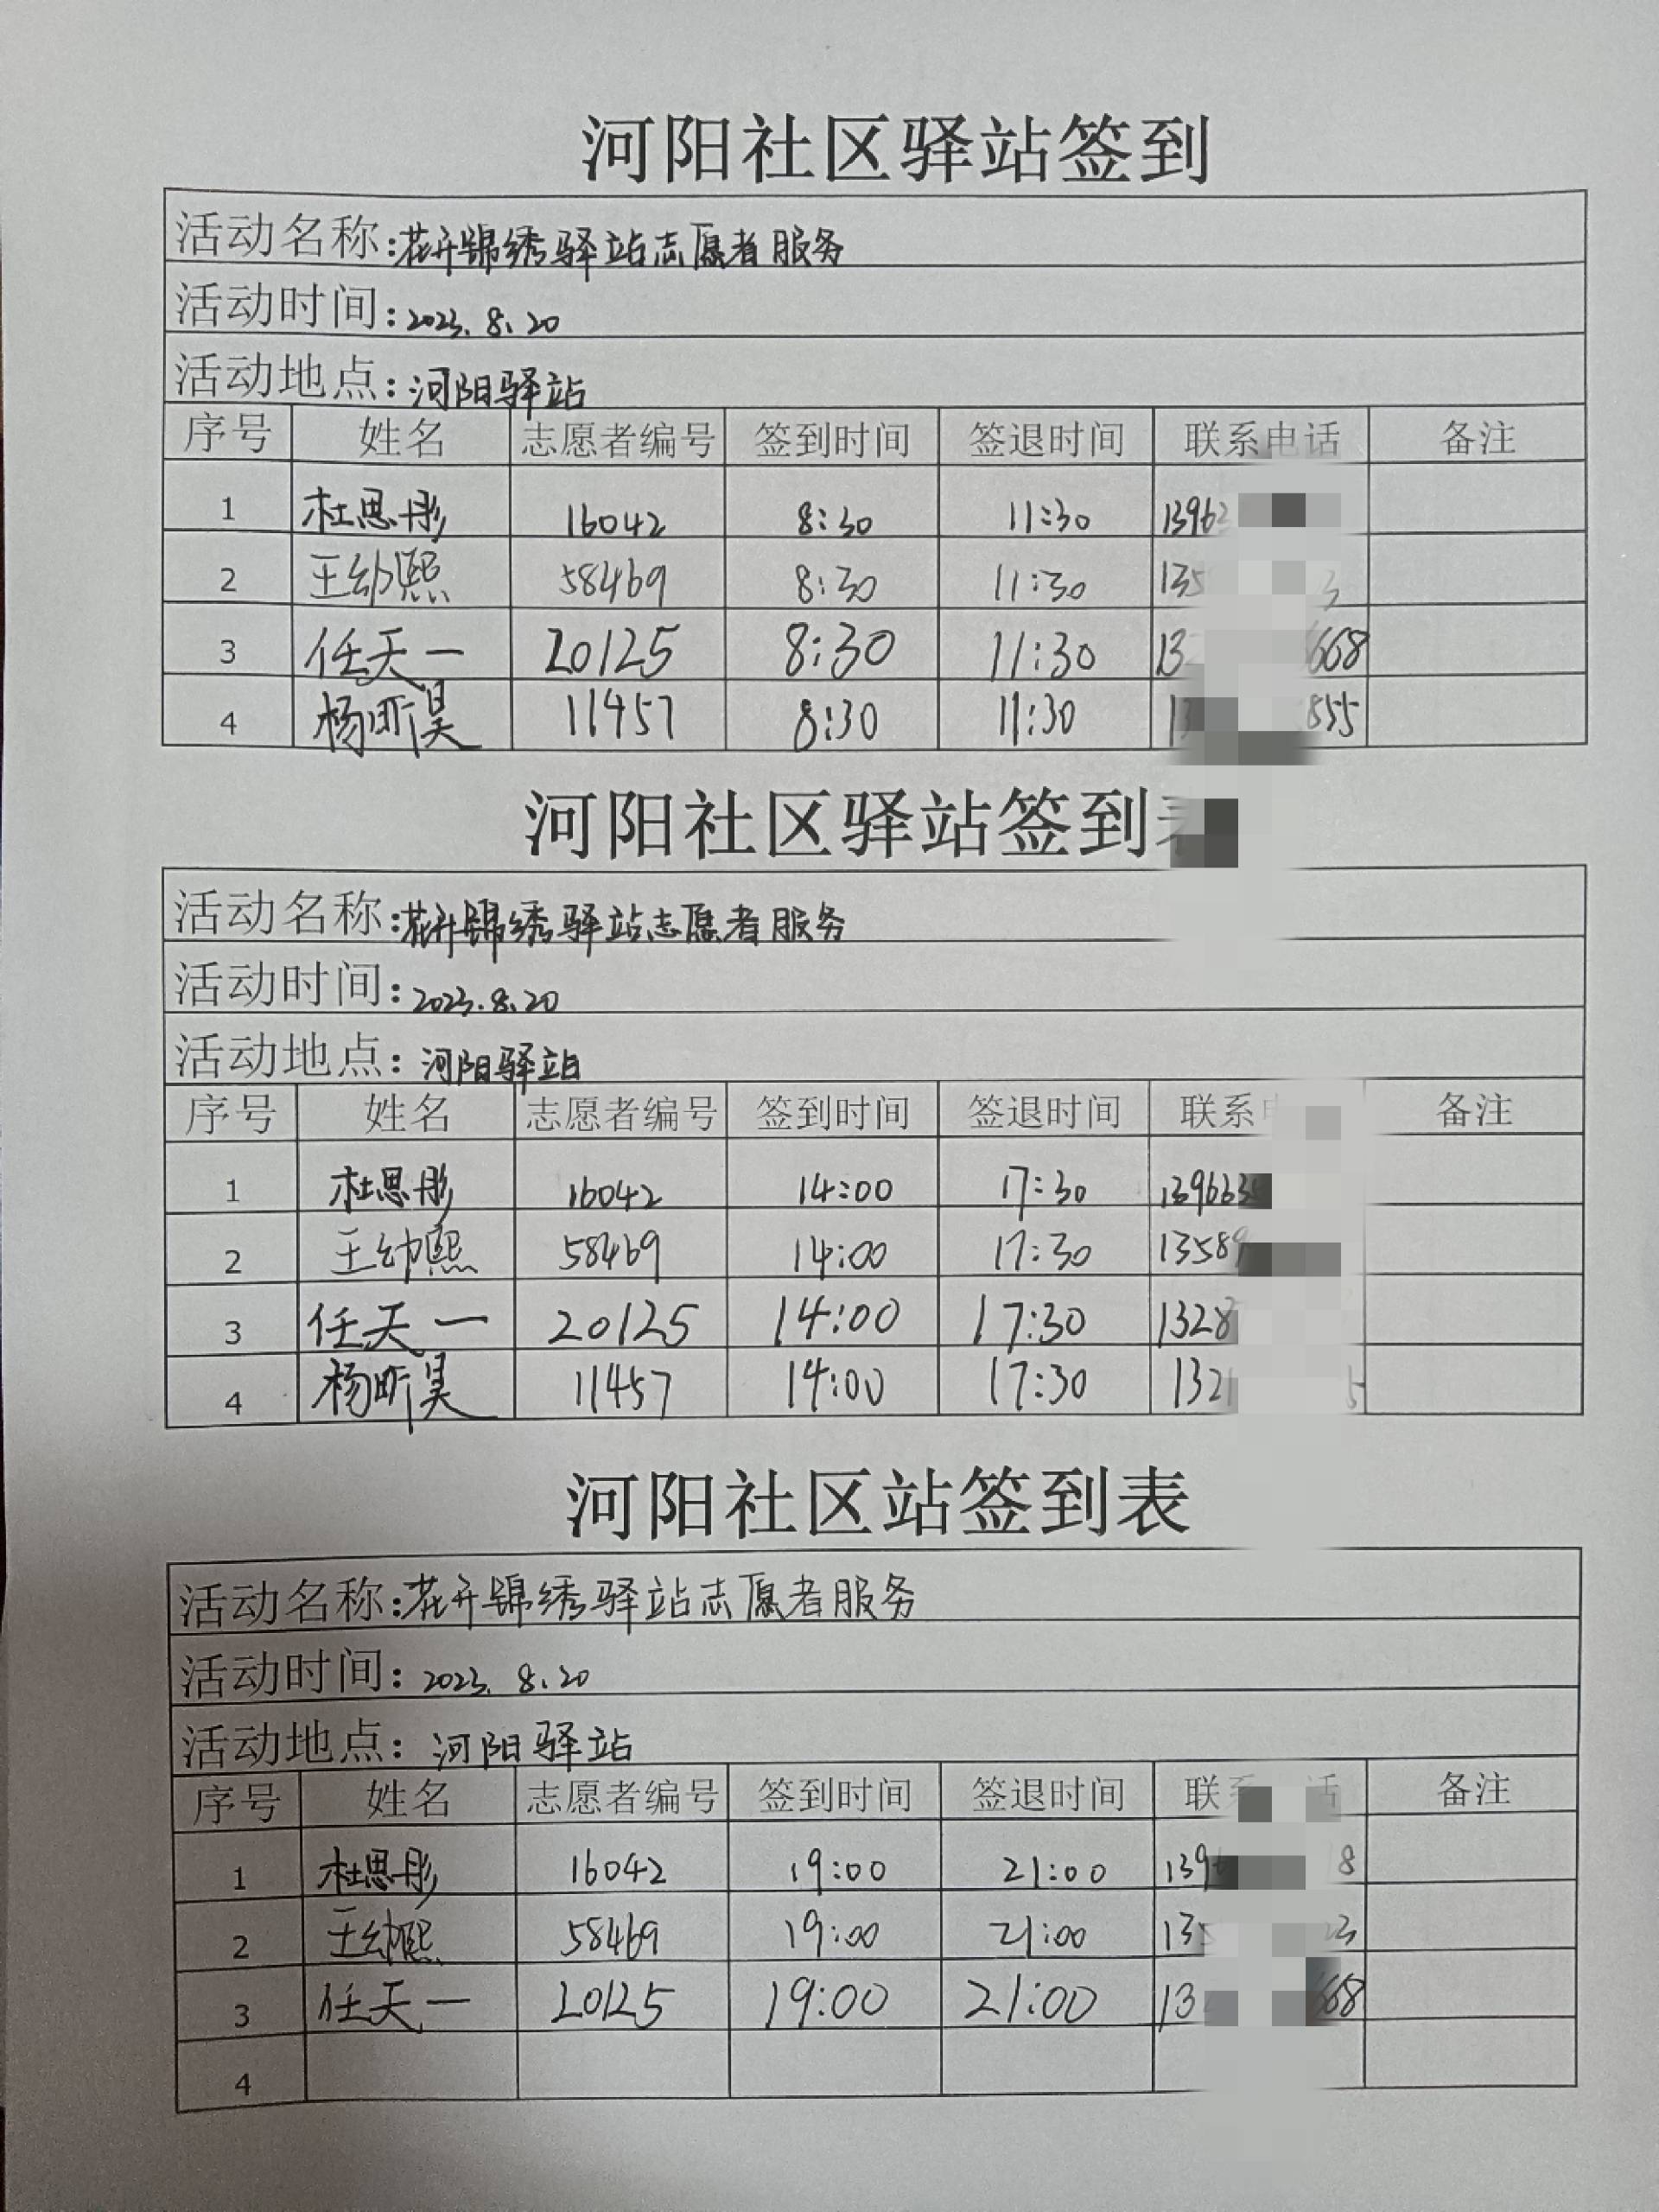 河阳社区驿站签到
活动名称:花开锦绣驿站志愿者服务
活动时间:2023.8.20
活动地点:河阳驿站
序号 姓名 志愿者编号 签到时间 签退时间 联系电话 备注
1 杜思彤 16042 8:30 11:30 1396
2 王幼熙 58469 8:30 11:30 135 3
3 任天一 20125 8:30 11:30 13 668
4 杨昕昊 11457 8:30 11:30 13 855
河阳社区驿站签到
活动名称:花开锦绣驿站志愿者服务
活动时间:2023.8.20
活动地点:河阳驿站
序号 姓名 志愿者编号 签到时间 签退时间 联系 备注
1 杜思彤 16042 14:00 17:30 13963
2 王幼熙 58469 14:00 17:30 1358
3 任天一 20125 14:00 17:30 1328
4 杨昕昊 11457 14:00 17:30 132
河阳社区站签到表
活动名称:花开锦绣驿站志愿者服务
活动时间:2023.8.20
活动地点:河阳驿站
序号 姓名 志愿者编号 签到时间 签退时间 联 备注
1 杜思彤 16042 19:00 21:00 139 8
2 王幼熙 58469 19:00 21:00 13 23
3 任天一 20125 19:00 21:00 13 668
4